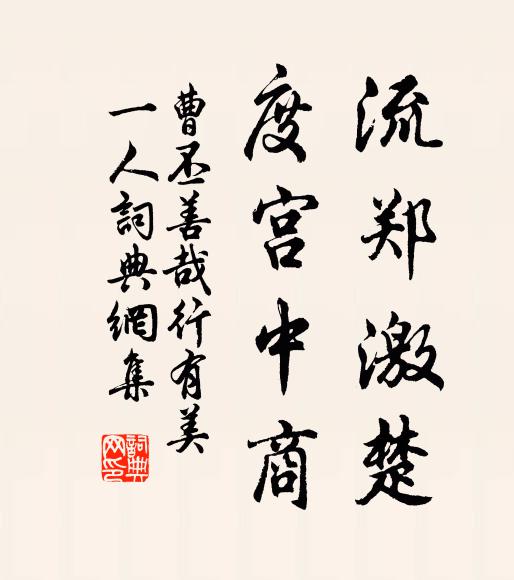 流郑激楚
度宫中商
曹丕善哉行有美
一人詞典網集
詞典
网印